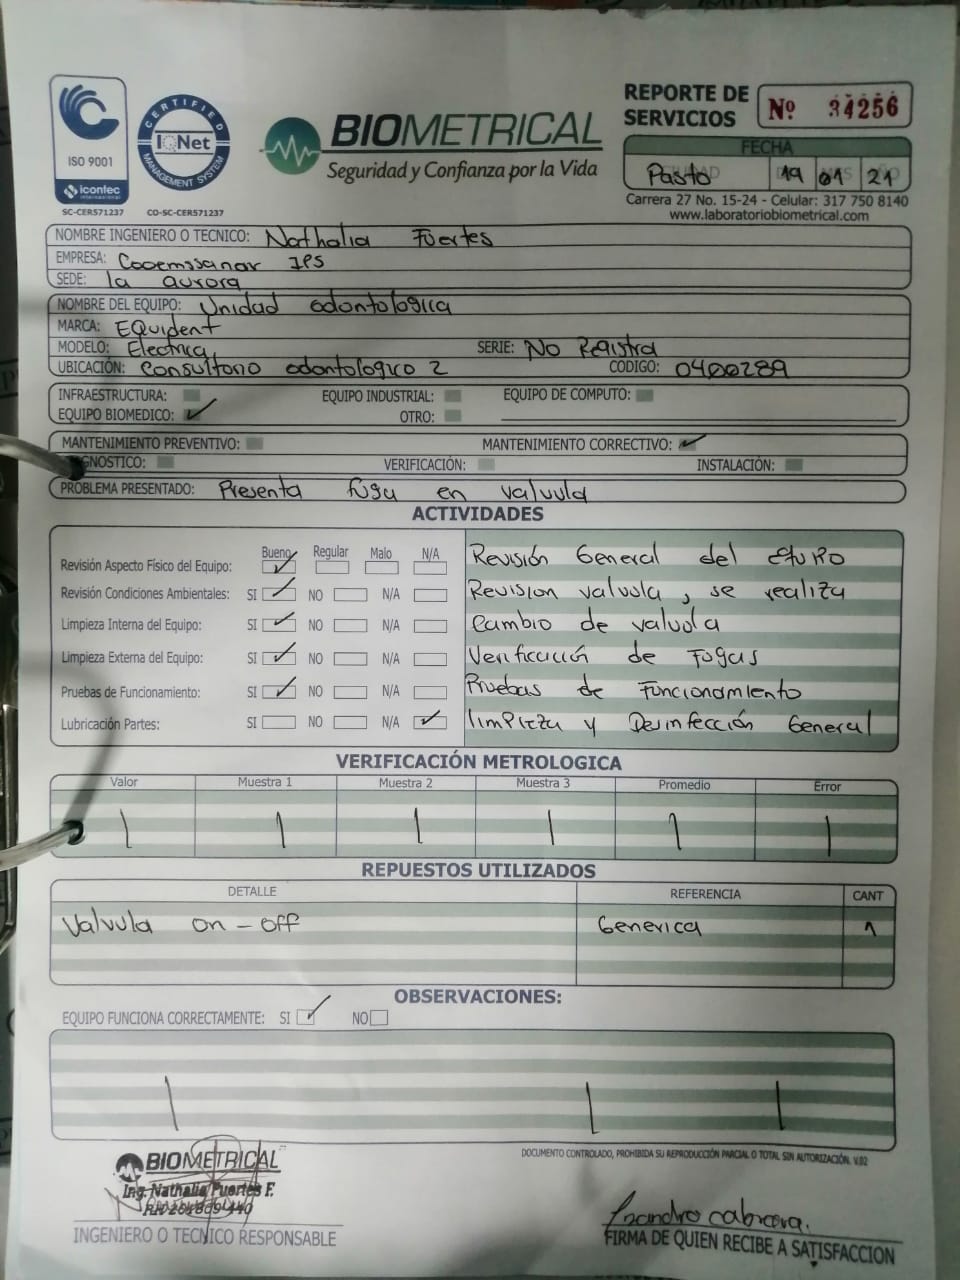 ISO 9001
icontec
internacional
SC-CER571237
CERTIFIED
IQNet
MANAGEMENT SYSTEM
CO-SC-CER571237
BIOMETRICAL
Seguridad y Confianza por la Vida
REPORTE DE SERVICIOS
Nº 34256
FECHA
Pasto 19 01 21
Carrera 27 No. 15-24 - Celular: 317 750 8140
www.laboratoriobiometrical.com
NOMBRE INGENIERO O TECNICO: Nathalia Fuertes
EMPRESA: Cooemssanar IPS
SEDE: la aurora
NOMBRE DEL EQUIPO: Unidad odontologica
MARCA: EQuident
MODELO: Electrica SERIE: No Registra
UBICACIÓN: Consultorio odontologico 2 CODIGO: 0400289
INFRAESTRUCTURA: EQUIPO INDUSTRIAL: EQUIPO DE COMPUTO:
EQUIPO BIOMEDICO: ✓ OTRO:
MANTENIMIENTO PREVENTIVO: MANTENIMIENTO CORRECTIVO: ✓
GNOSTICO: VERIFICACIÓN: INSTALACIÓN:
PROBLEMA PRESENTADO: Presenta fuga en valvula
ACTIVIDADES
Bueno Regular Malo N/A
Revisión Aspecto Físico del Equipo: ✓
Revisión Condiciones Ambientales: SI ✓ NO N/A
Limpieza Interna del Equipo: SI ✓ NO N/A
Limpieza Externa del Equipo: SI ✓ NO N/A
Pruebas de Funcionamiento: SI ✓ NO N/A
Lubricación Partes: SI NO N/A ✓
Revisión General del equipo
Revision valvula, se realiza
Cambio de valvula
Verificación de Fugas
Pruebas de Funcionamiento
limpieza y Desinfección General
VERIFICACIÓN METROLOGICA
Valor Muestra 1 Muestra 2 Muestra 3 Promedio Error
/ / / / / /
REPUESTOS UTILIZADOS
DETALLE REFERENCIA CANT
Valvula on - off Generica 1
OBSERVACIONES:
EQUIPO FUNCIONA CORRECTAMENTE: SI ✓ NO
/ / /
DOCUMENTO CONTROLADO, PROHIBIDA SU REPRODUCCIÓN PARCIAL O TOTAL SIN AUTORIZACIÓN. V.02
BIOMETRICAL
Ing. Nathalia Fuertes F.
INGENIERO O TECNICO RESPONSABLE
Lisandro cabrera.
FIRMA DE QUIEN RECIBE A SATISFACCION